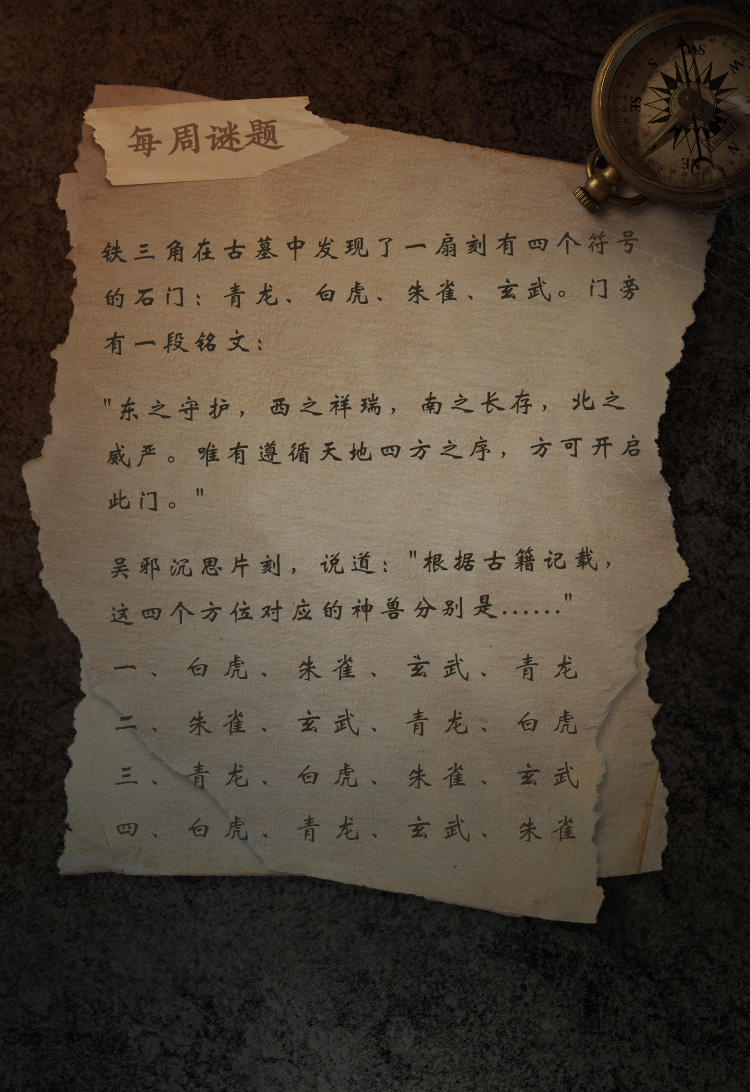 每周谜题
铁三角在古墓中发现了一扇刻有四个符号
的石门：青龙、白虎、朱雀、玄武。门旁
有一段铭文：
"东之守护，西之祥瑞，南之长存，北之
威严。唯有遵循天地四方之序，方可开启
此门。"
吴邪沉思片刻，说道："根据古籍记载，
这四个方位对应的神兽分别是......"
一、白虎、朱雀、玄武、青龙
二、朱雀、玄武、青龙、白虎
三、青龙、白虎、朱雀、玄武
四、白虎、青龙、玄武、朱雀
SW
W
S
SE
N
NE